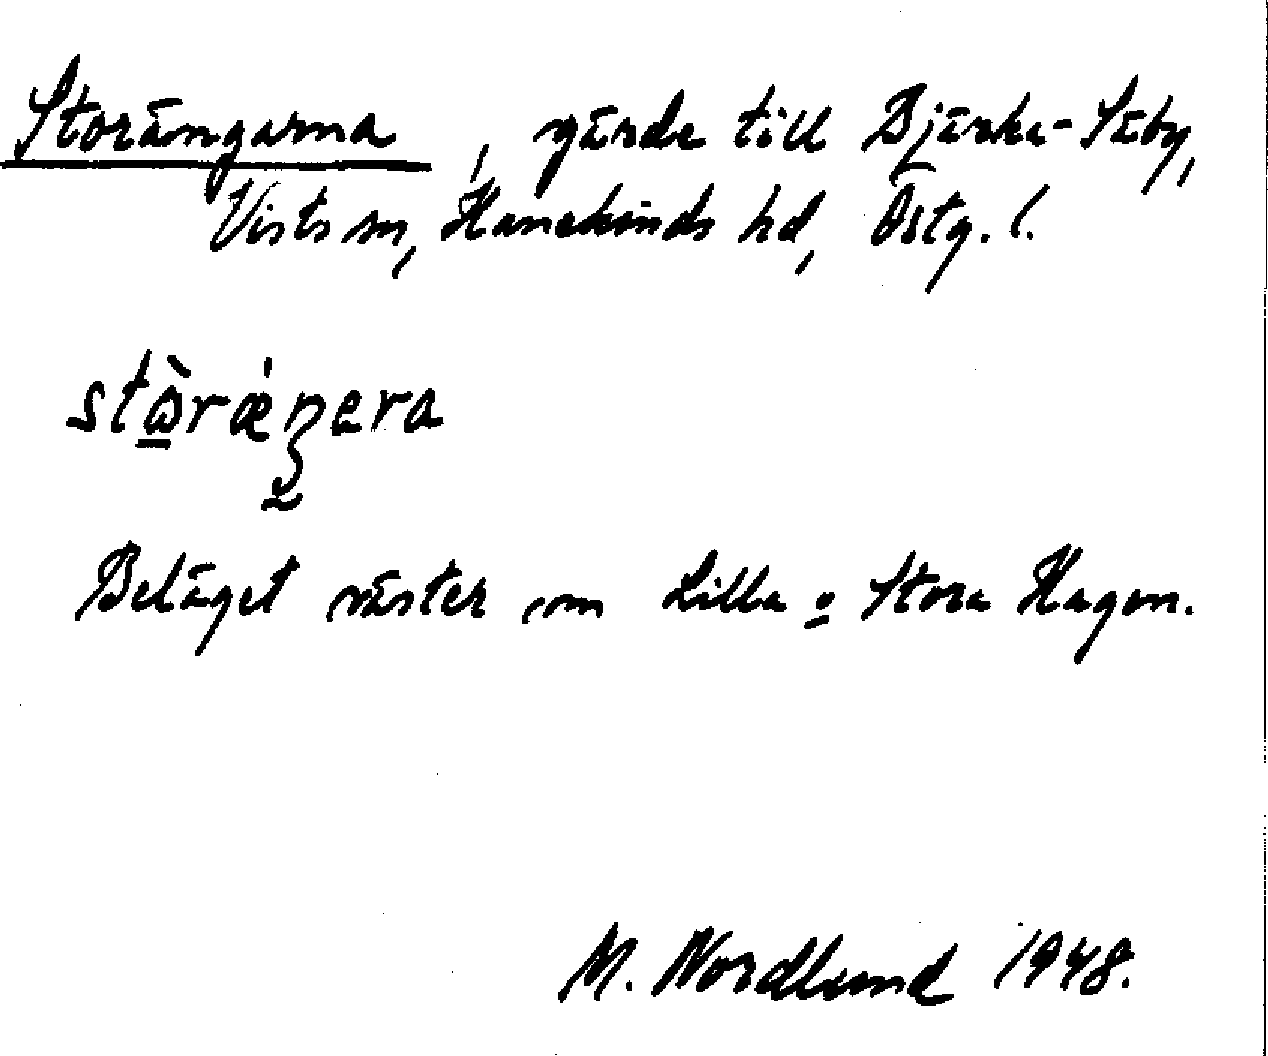 Storängarna, gärde till Bjärka-Säby,
Vists sn, Hanekinds hd, Östg. l.
stɷ̀rǽŋera
Beläget väster om Lilla o Stora Hagen.
M. Nordlund 1948.